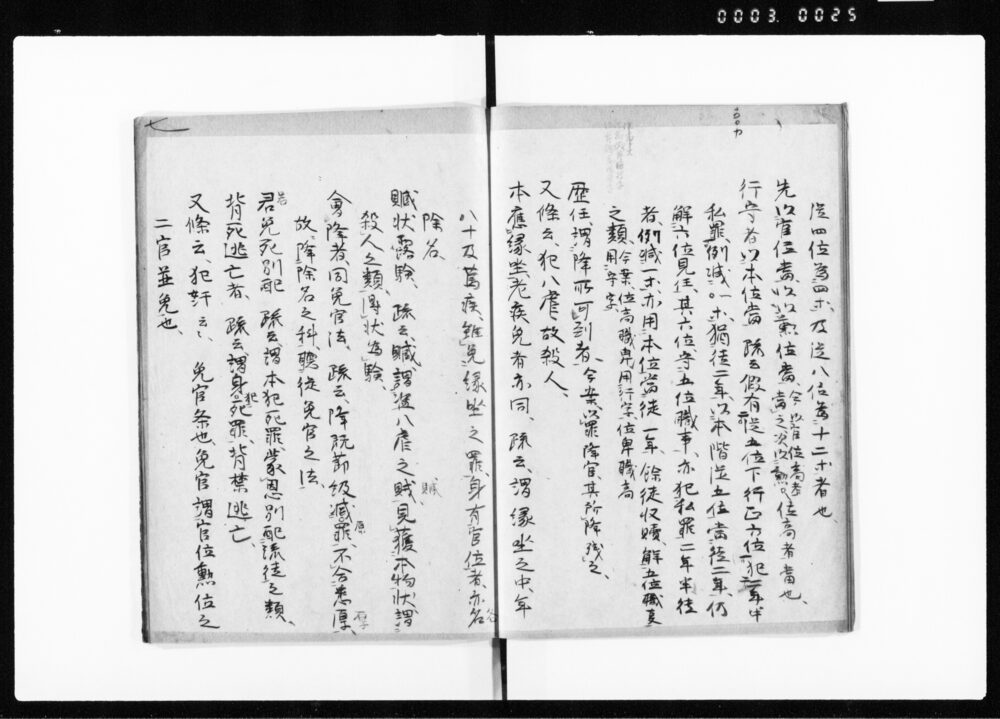 0003.0025
従四位為四等、及従八位為十二等者也、
先以官位当、次以勲位当、今案官位高者
当之、次以勲位高者当也、
行守者以本位当、疏云、假有従五位下行正六位、犯二年半
私罪、例減一等、猶徒二年、以本階従五位当徒二年、仍
解六位見任、其六位守五位職事、亦犯私罪二年半徒
者、例減一等、亦用本位当徒一年、餘徒収贖、解五位職事
之類、今案、位高職卑用行字、位卑職高
用守字、
歴任、謂降所不到者、今案、以罪降官、其所降残云、
又條云、犯八虐、故殺人、
本應縁坐、老疾免者亦同、疏云、謂縁坐之中、年
八十及篤疾、雖免縁坐之罪、身有官位者、亦名
除名、
贓状露験、疏云、贓謂盗八虐之贓、見獲本物、状謂
殺人之類、得状為験、
會降者、同免官法、疏云、降既節級減罪、不合悉原、
故降除名之科、聴従免官之法、
君免死別配、疏云、謂本犯死罪、蒙恩別配流徒之類、
背死逃亡者、疏云、謂身犯死罪、背禁逃亡、
又條云、犯奸云々、免官条也、免官謂官位勲位之
二官並免也、